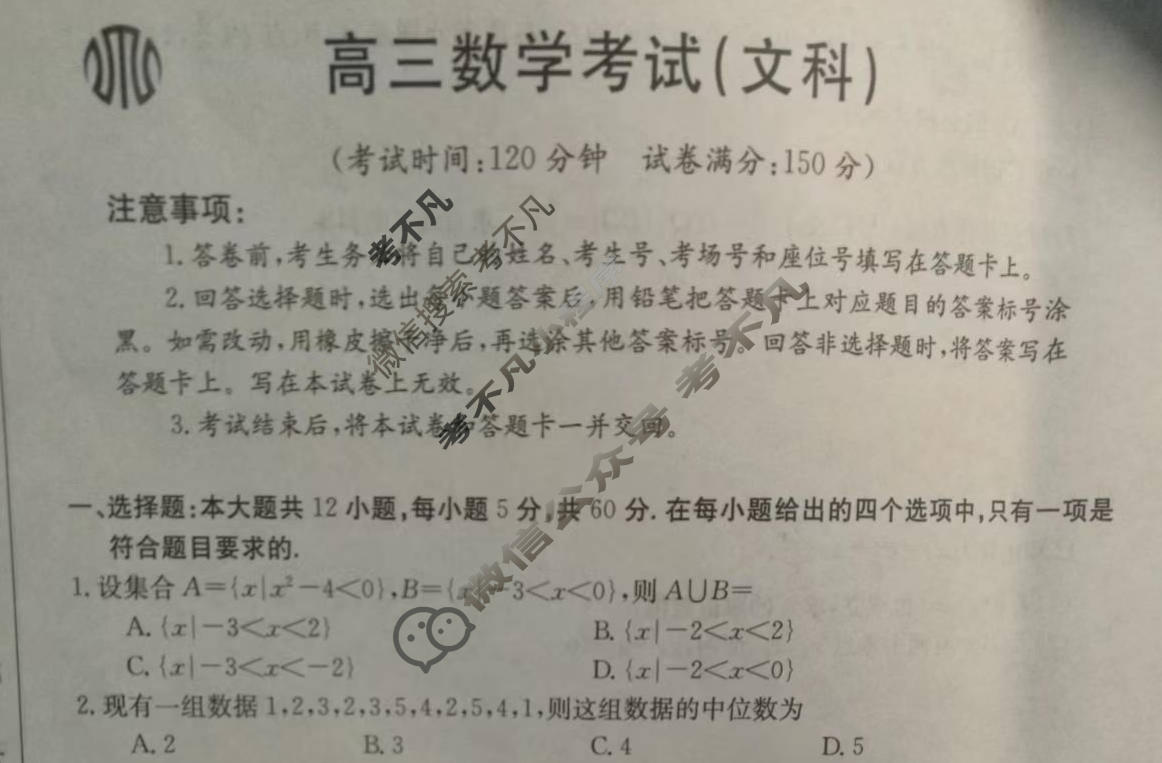 高三数学考试(文科)
(考试时间:120分钟 试卷满分:150分)
注意事项:
1.答卷前,考生务 将自己 姓名、考生号、考场号和座位号填写在答题卡上。
2.回答选择题时,选出每小题答案后,用铅笔把答题卡上对应题目的答案标号涂
黑。如需改动,用橡皮擦干净后,再选涂其他答案标号。回答非选择题时,将答案写在
答题卡上。写在本试卷上无效。
3.考试结束后,将本试卷和答题卡一并交回。
一、选择题:本大题共12小题,每小题5分,共60分.在每小题给出的四个选项中,只有一项是
符合题目要求的.
1.设集合A={x|x²-4<0},B={x|-3<x<0},则A∪B=
A.{x|-3<x<2}
B.{x|-2<x<2}
C.{x|-3<x<-2}
D.{x|-2<x<0}
2.现有一组数据1,2,3,2,3,5,4,2,5,4,1,则这组数据的中位数为
A.2
B.3
C.4
D.5
考不凡
微信搜索 考不凡
考不凡小程序
微信公众号 考不凡